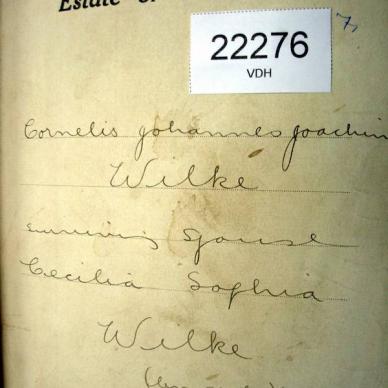 Estate
7,
22276
VDH
Cornelis Johannes Joachim
Wilke
surviving spouse
Cecilia Sophia
Wilke